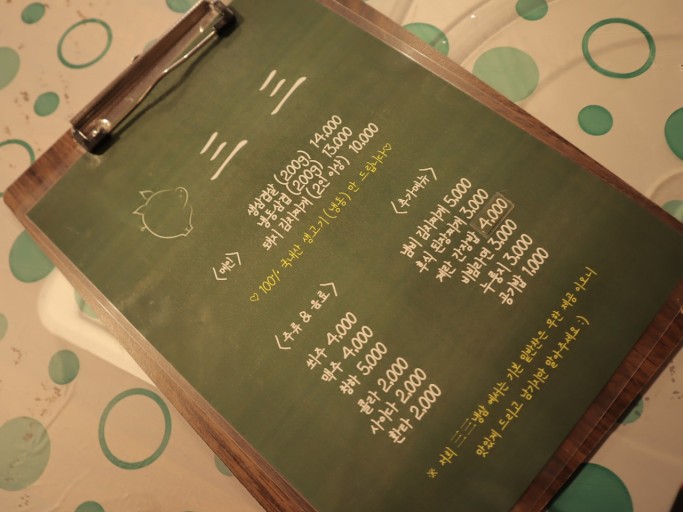 三 三
<메인>
생삼겹살 (200g) 14.000
냉동삼겹 (200g) 13.000
돼지 김치찌개 (2인 이상) 10.000
♡ 100% 국내산 생고기(냉동)만 드립니다♡
<추가메뉴>
냄비 김치찌개 5.000
후식 된장찌개 3.000
계란 간장밥 4.000
비빔라면 3.000
누룽지 3.000
공기밥 1.000
<주류 & 음료>
쐬주 4.000
맥주 4.000
청하 5.000
콜라 2.000
사이다 2.000
환타 2.000
※ 저희 三三냉삼 에서는 기본 밑반찬은 무한 제공 이오니
맛있게 드리고 남기지만 말아주세요 :)